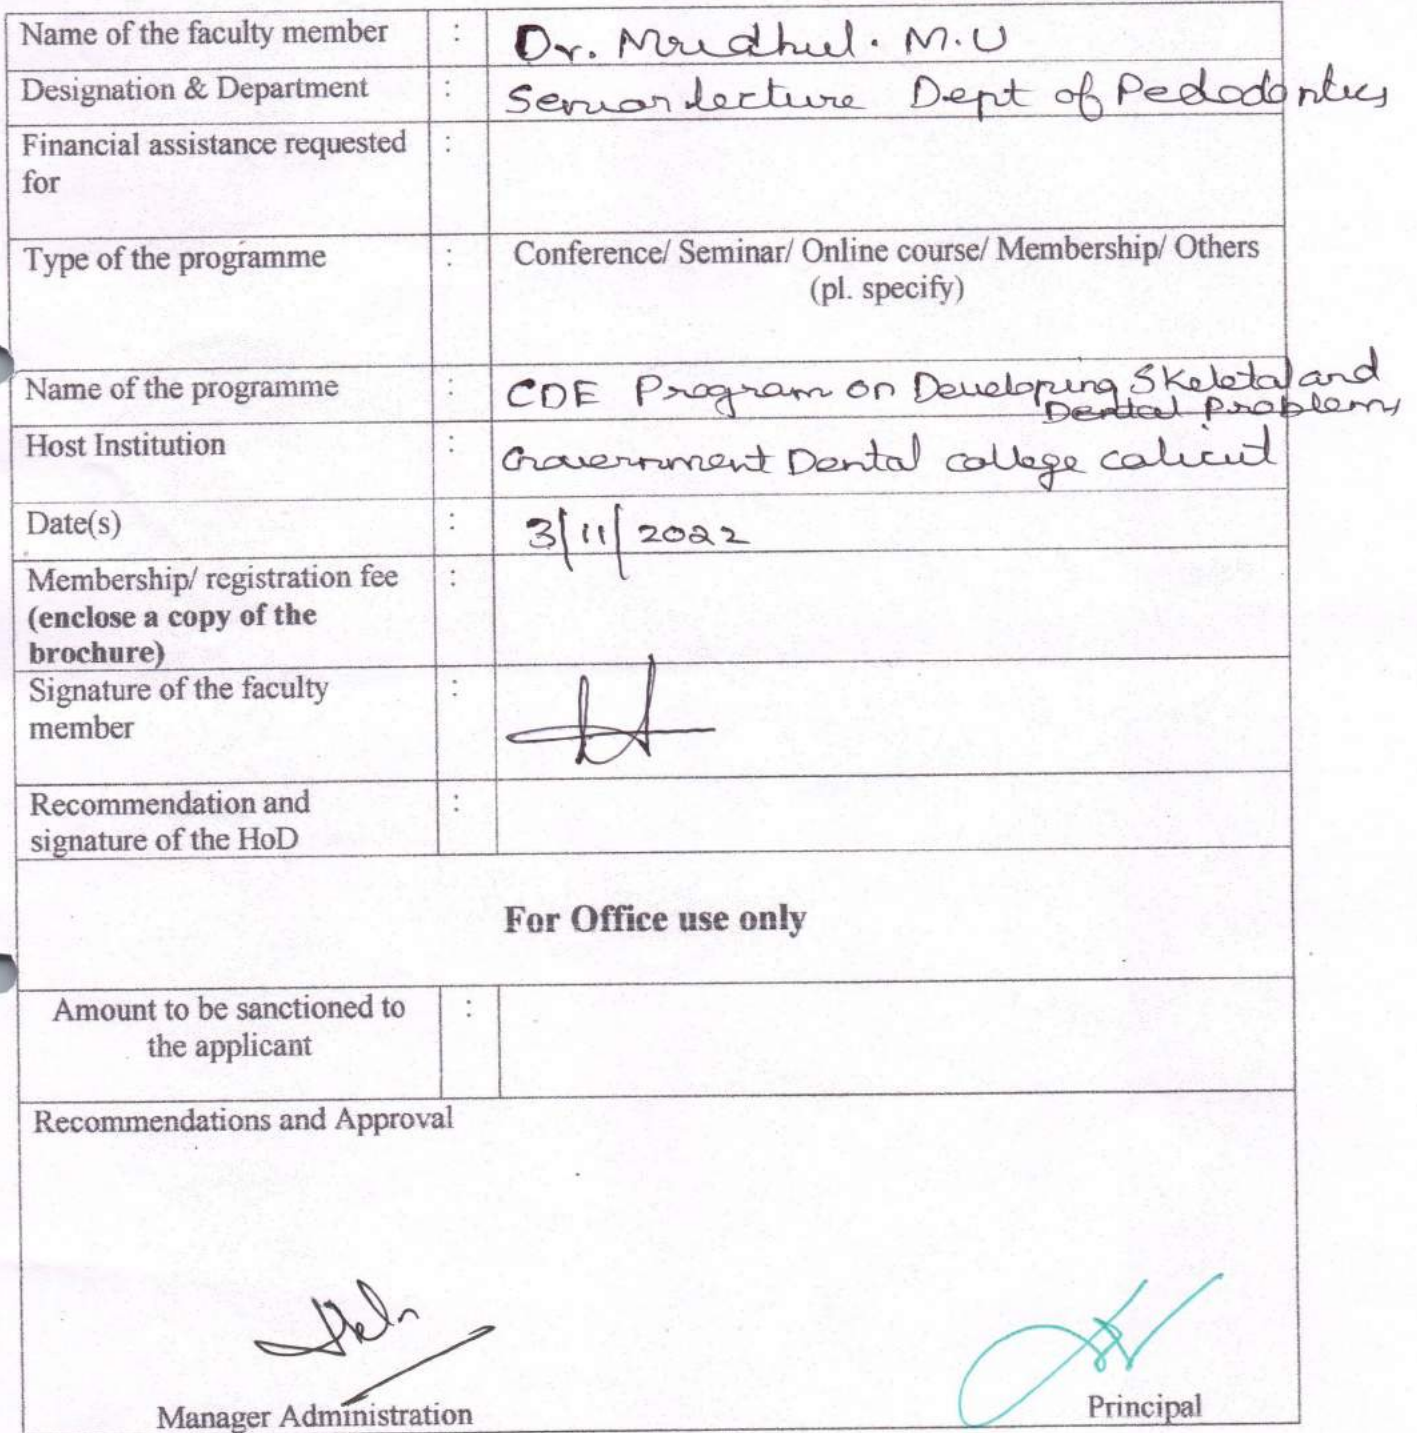 Name of the faculty member : Dr. Mridhul. M.U
Designation & Department : Senior lecture Dept of Pedodontics
Financial assistance requested :
for
Type of the programme : Conference/ Seminar/ Online course/ Membership/ Others
(pl. specify)
Name of the programme : CDE Program on Developing Skeletal and
Dental Problems
Host Institution : Government Dental college calicut
Date(s) : 3/11/2022
Membership/ registration fee :
(enclose a copy of the
brochure)
Signature of the faculty :
member
Recommendation and :
signature of the HoD
For Office use only
Amount to be sanctioned to :
the applicant
Recommendations and Approval
Manager Administration
Principal